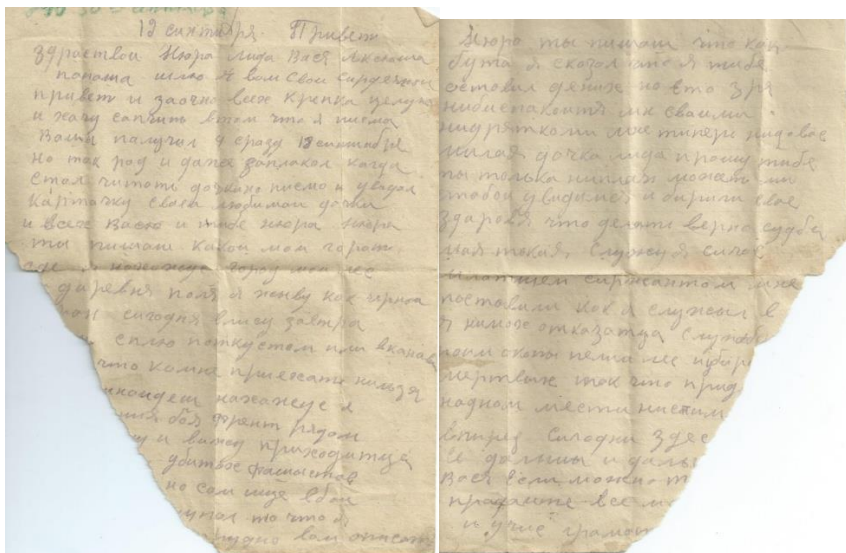 12 сентября Привет
здраствои Нюра лида Вася
папаша шлю я вам свой сардечнои
привет и заочно всех крепка целую
и хачу сапчить втом что я писма
Ваши палучил 4 сразу 12 сентября
но так рад и даже заплакал кагда
стал читать письмо и увидал
карточку своеи любимои дочки
и всех Васю и тибе Нюра Нюра
ты пишиш какои мои гарат
где я нахожуса город мои лес
диревня поля я живу как
сигодня влису завтра
сплю поткустом или вканаве
что комне приежать нильзя
нинаидеш нахажус я
боя фронт рядом
и вижу приходитца
убитых фашыстов
но сам ище вбои
то что я
трудно вам описать
Нюра ты пишиш что как
бута я сказал што я тибе
оставил дениг но ето зря
нибиспакоитя мне сваими
мне типерь
милая дочка лида прошу тибе
ты только ниплач можать мы
стобои увидимся и бириги свое
здаровя что делать верно судьба
мая такая. Служу я сичас
младшем сиржантом мне
поставили как я служыл в
и нимок отказатца служба
окопы пешы
мертвых так что прид
наднам мести нистоим
впиред сигодни здес
и дальшы и даль
Вася Если можно т
прадаите все
и учис грамот